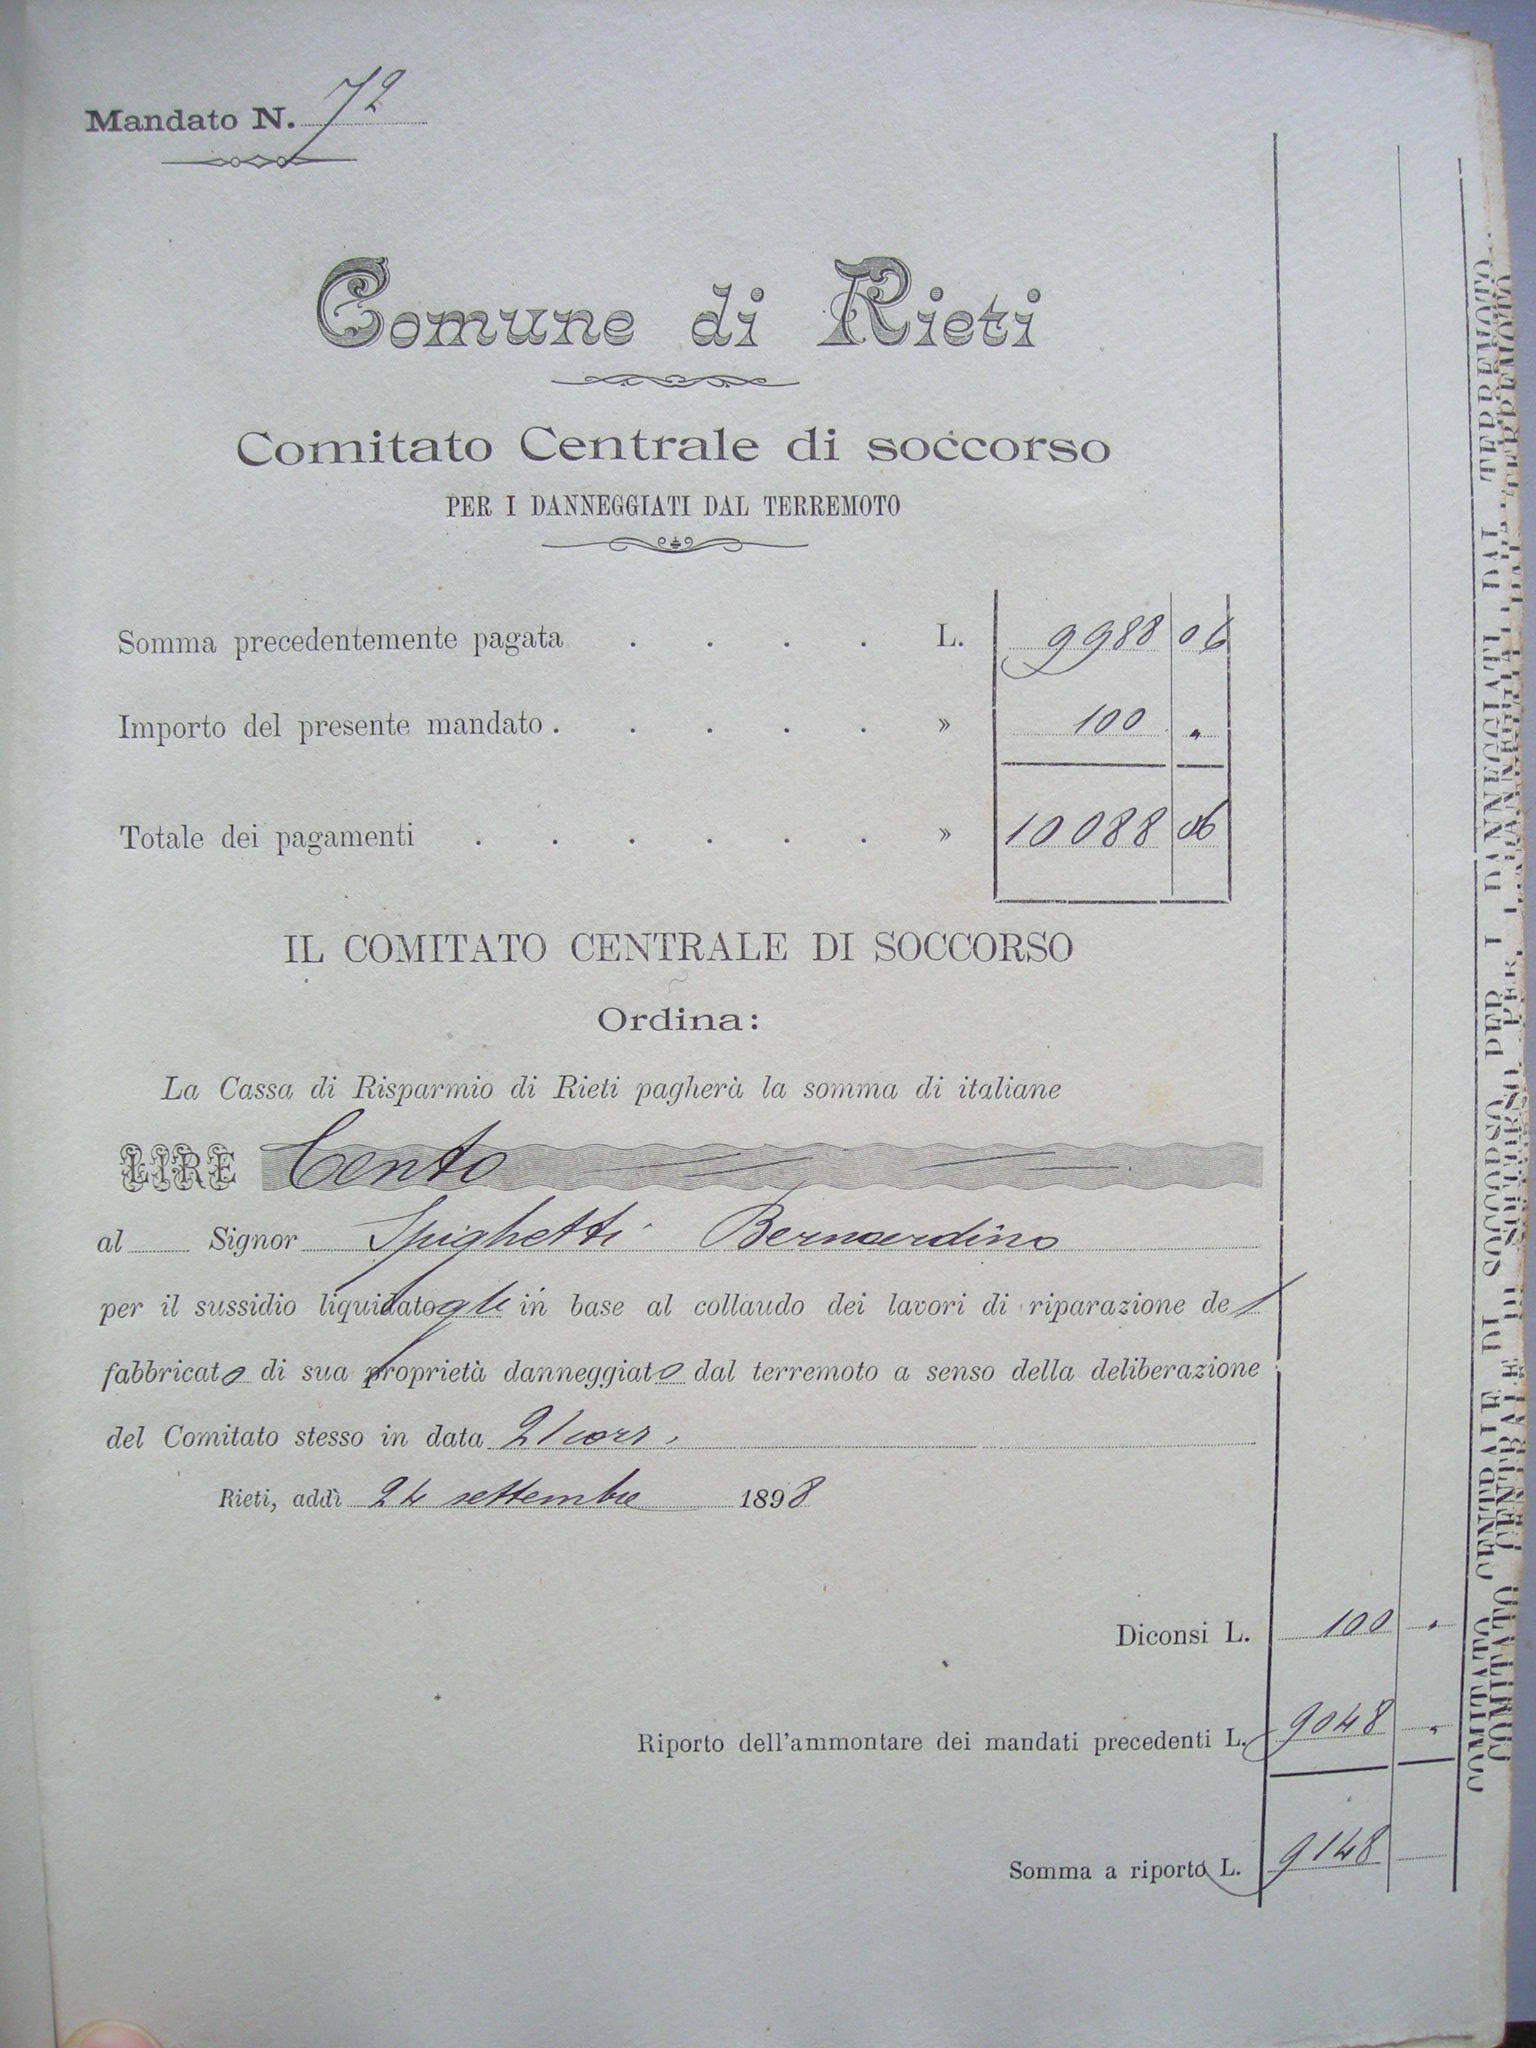 Mandato N. 72
Comune di Rieti
Comitato Centrale di soccorso
PER I DANNEGGIATI DAL TERREMOTO
Somma precedentemente pagata . . . . L. 9988 06
Importo del presente mandato . . . . . » 100 "
Totale dei pagamenti . . . . . . » 10088 06
IL COMITATO CENTRALE DI SOCCORSO
Ordina:
La Cassa di Risparmio di Rieti pagherà la somma di italiane
LIRE Cento
al Signor Spighetti Bernardino
per il sussidio liquidatogli in base al collaudo dei lavori di riparazione del
fabbricato di sua proprietà danneggiato dal terremoto a senso della deliberazione
del Comitato stesso in data 21 corr.
Rieti, addì 24 settembre 1898
Diconsi L. 100 "
Riporto dell'ammontare dei mandati precedenti L. 9048 "
Somma a riporto L. 9148
COMITATO CENTRALE DI SOCCORSO PER I DANNEGGIATI DAL TERREMOTO
COMITATO CENTRALE DI SOCCORSO PER I DANNEGGIATI DAL TERREMOTO